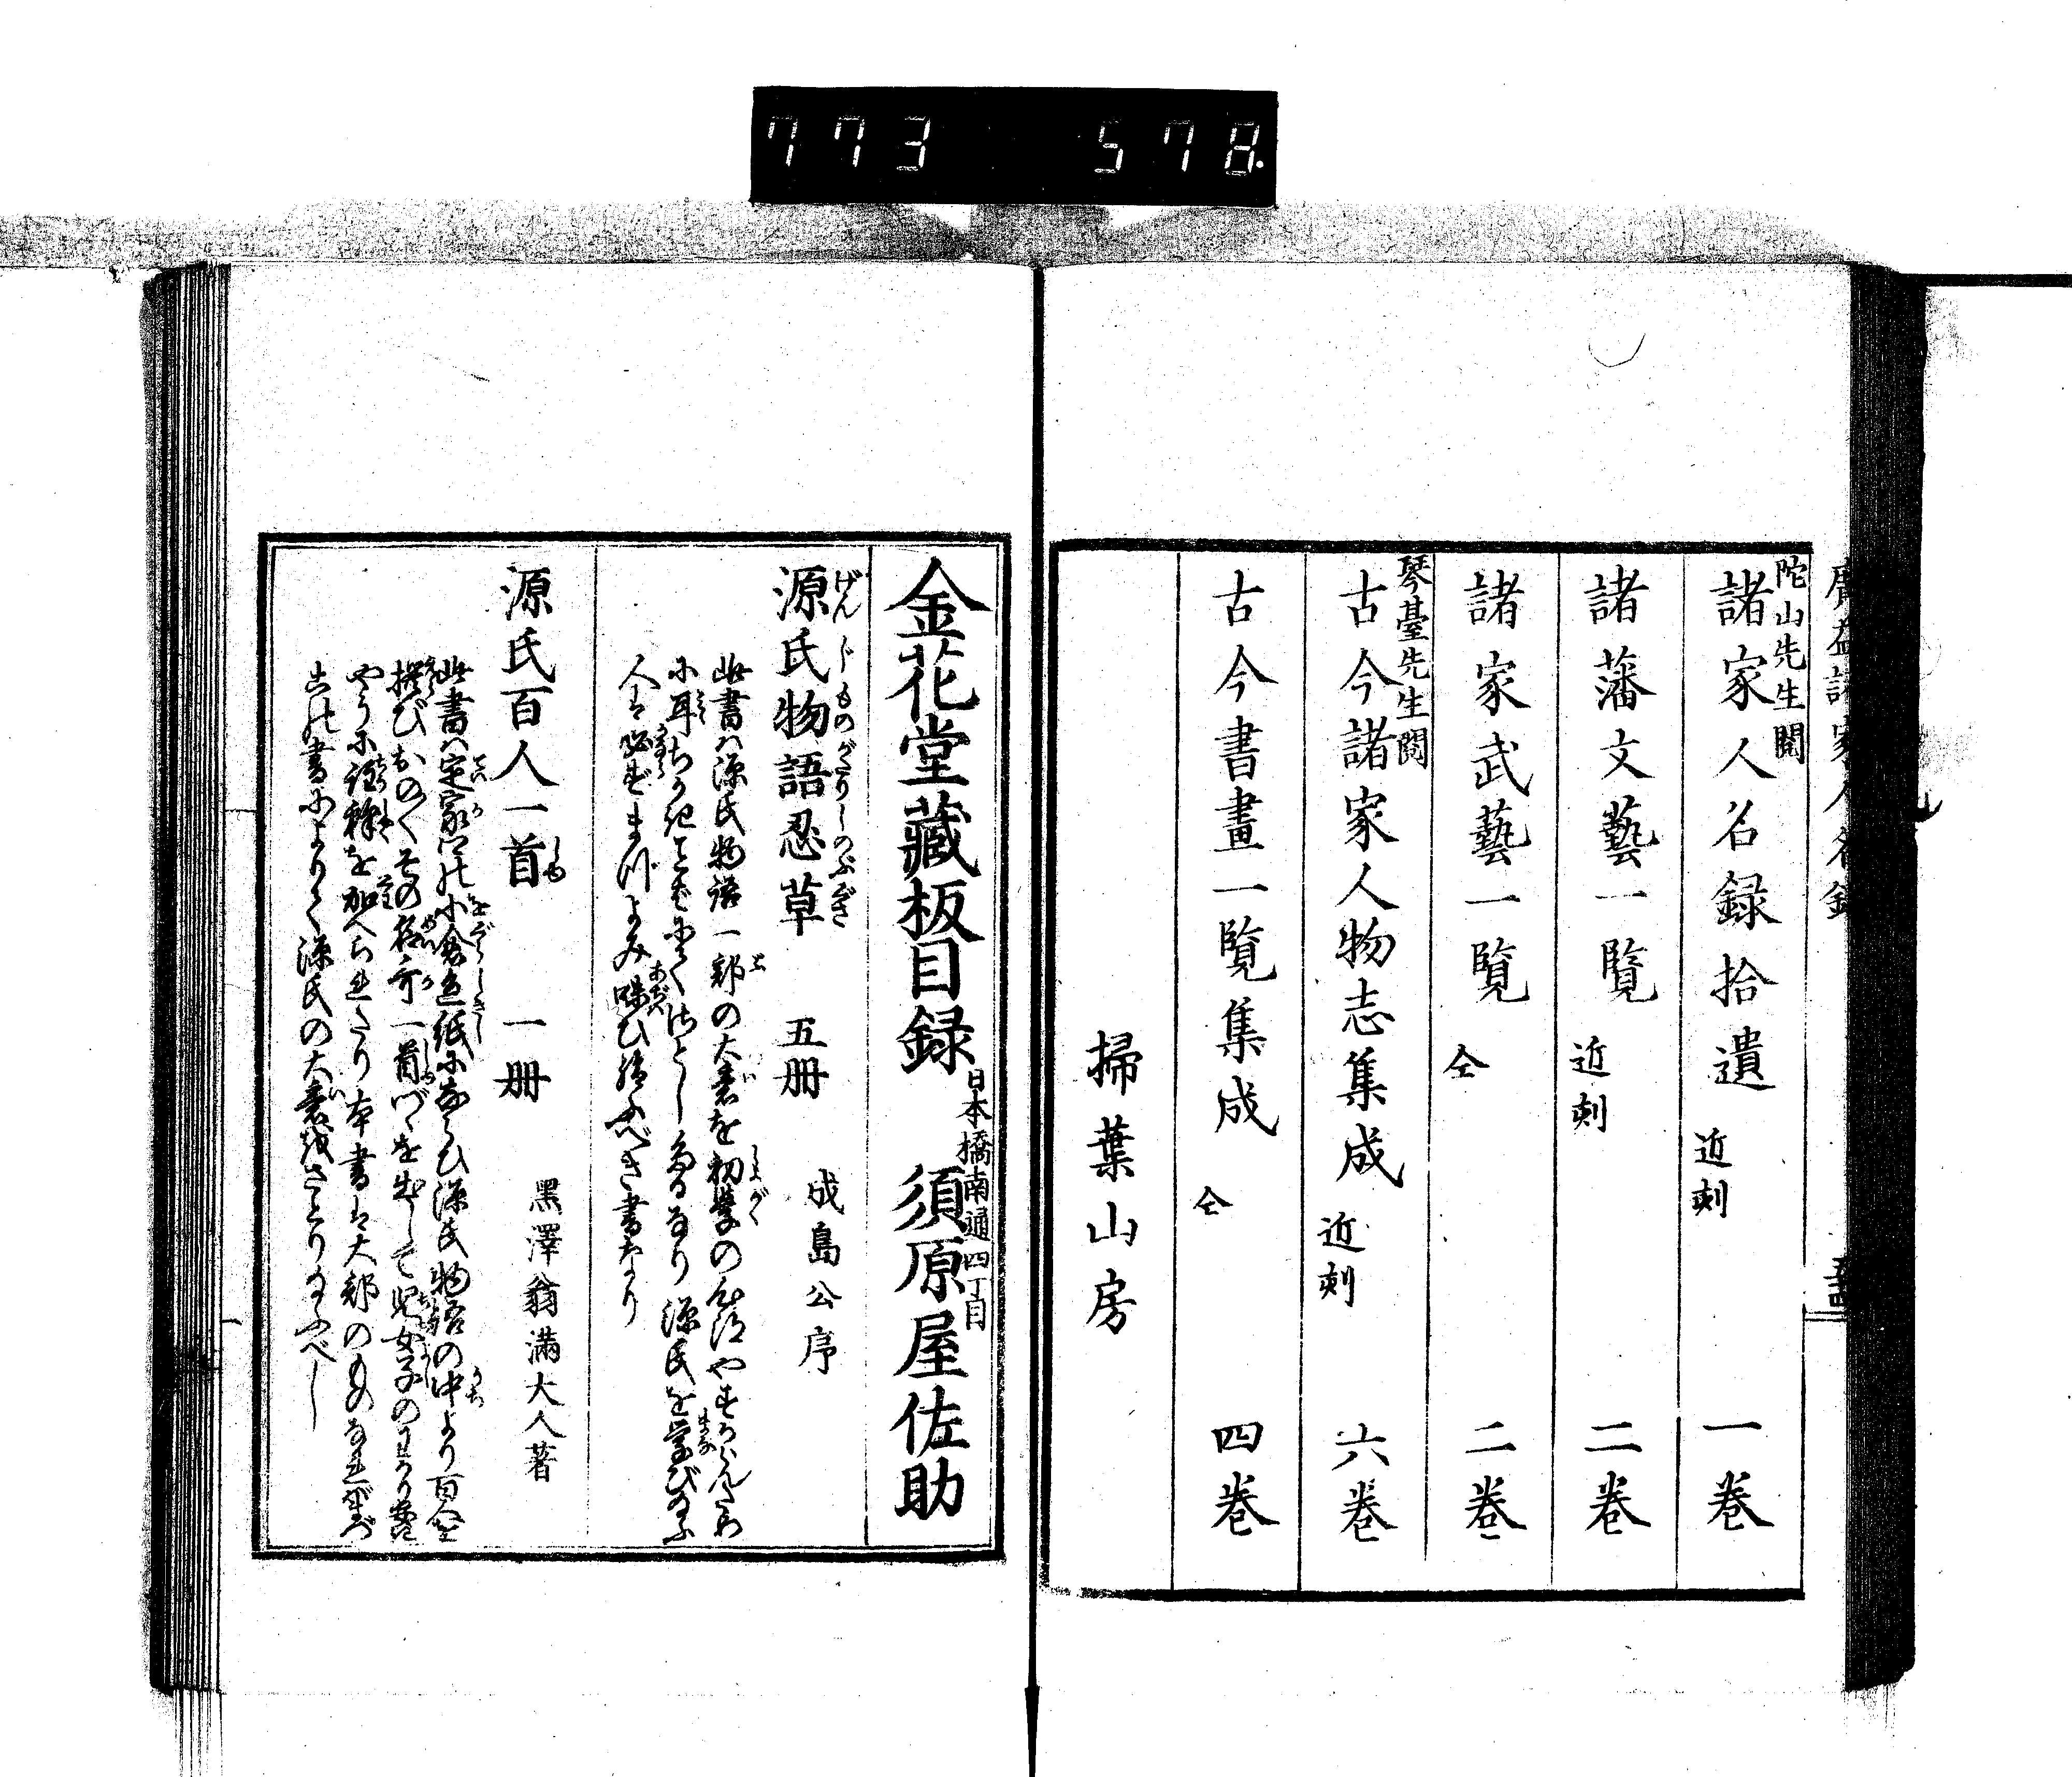 773 578.
陀山先生閲
諸家人名録拾遺 近刻 一巻
諸藩文藝一覧 近刻 二巻
諸家武藝一覧 仝 二巻
琴臺先生閲
古今諸家人物志集成 近刻 六巻
古今書畫一覧集成 仝 四巻
掃葉山房
金花堂藏板目録 日本橋南通四丁目 須原屋佐助
源氏物語忍草 五冊 成島公序
此書ハ源氏物語一部の大意を初學の
人々必ずまづよみ味ひ給ふべき書なり
源氏百人一首 一冊 黒澤翁満大人著
此書ハ定家卿の小倉色紙にならひ源氏物語の中より百人を
撰びおの〳〵その詠哥一首づゝを出して児女子の
やうに註釋を加へられたり本書は大部のものなれバまづ
この書によりて源氏の大意をさとり給ふべし